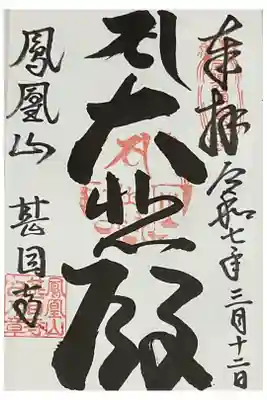 奉拝
令和七年三月十二日
大悲殿
鳳凰山 甚目寺